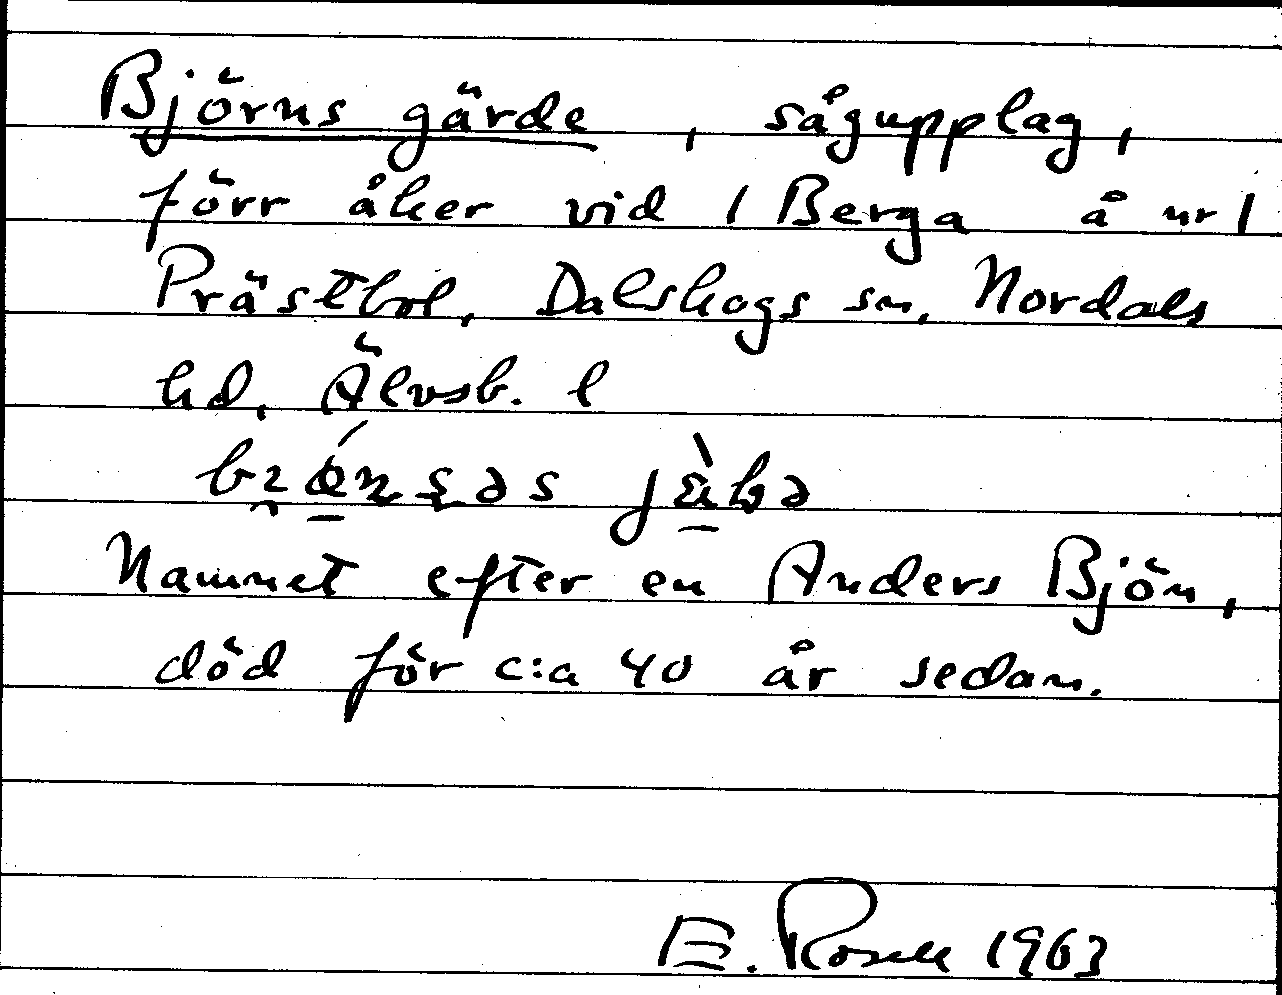 Björns gärde, sågupplag,
förr åker vid 1 Berga å nr 1
Prästbol, Dalskogs sn, Nordals
hd, Älvsb. l
Namnet efter en Anders Björn,
död för c:a 40 år sedan.
E. Rosell 1963